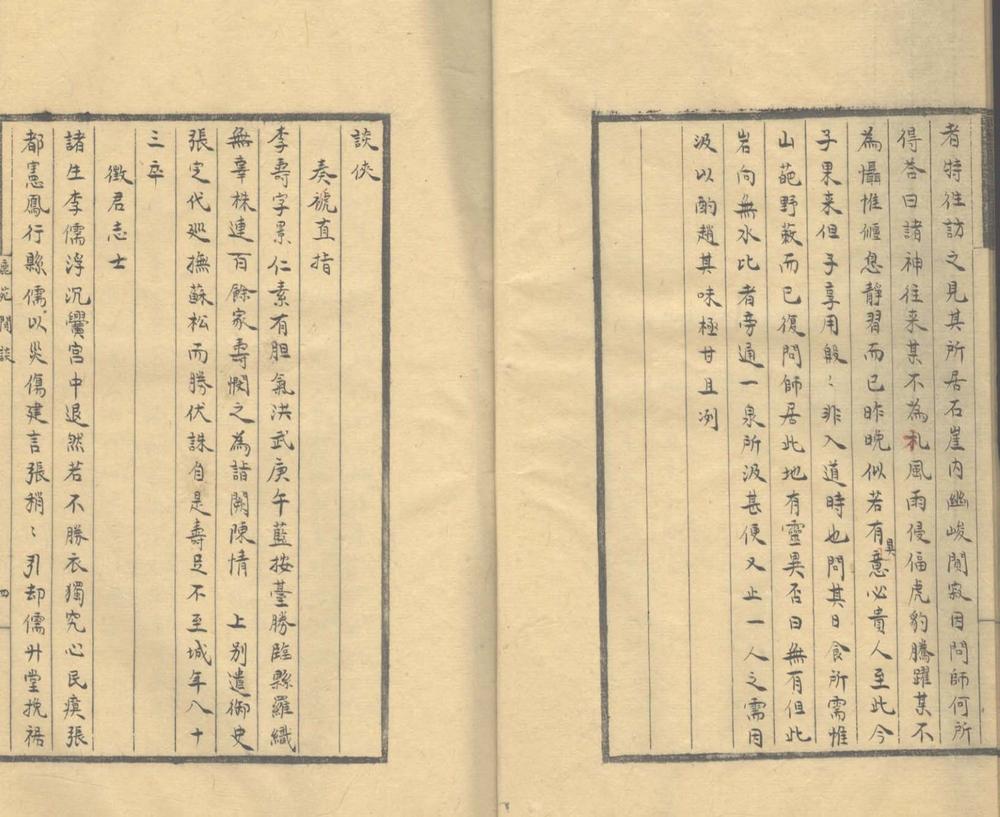 者特往訪之見其所居石崖内幽峻閒寂因問師何所
得答曰諸神往来某不為礼風雨侵偪虎豹騰躍某不
為懾惟偃息靜習而已昨晚似若有異意必貴人至此今
子果来但子享用殷〻非入道時也問其日食所需惟
山葩野蔌而已復問師居此地有靈異否曰無有但此
岩向無水比者旁通一泉所汲甚便又止一人之需因
汲以酌趙其味極甘且冽
談俠
奏褫直指
李壽字景仁素有胆氣洪武庚午藍按臺勝臨縣羅織
無辜株連百餘家壽憫之為詣闕陳情 上別遣御史
張定代廵撫蘇松而勝伏誅自是壽足不至城年八十
三卒
徵君志士
諸生李儒浮沉黌宮中退然若不勝衣獨究心民瘼張
都憲鳳行縣儒以災傷建言張稍〻引却儒升堂挽裾
鹿苑閒談
四